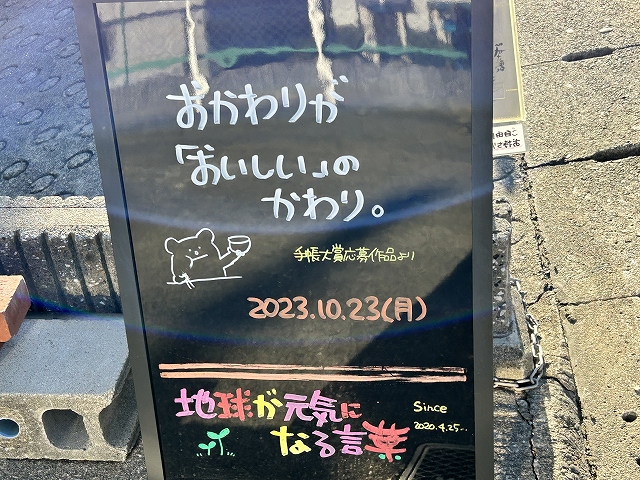 おかわりが
「おいしい」の
かわり。
手帳大賞応募作品より
2023.10.23(月)
地球が元気に
なる言葉
Since
2020.4.25...